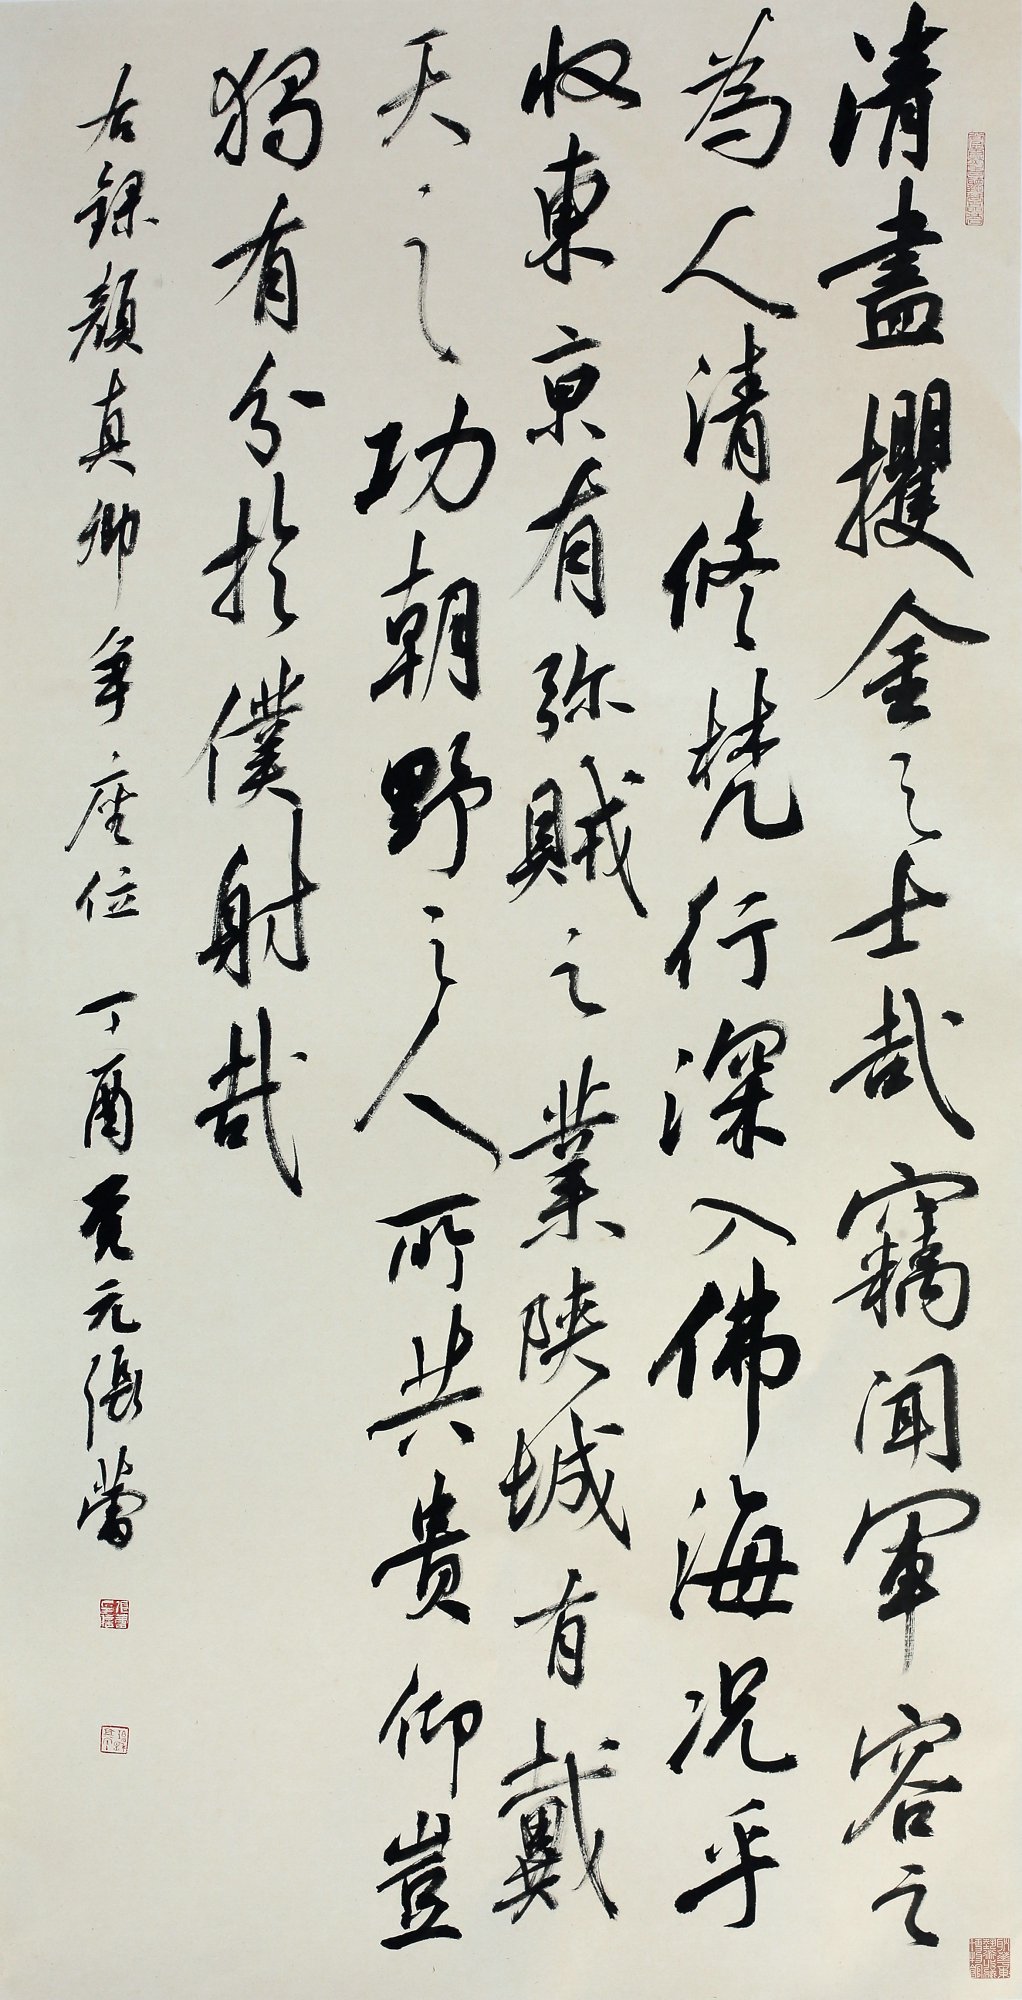 清盡攫金之士哉竊聞軍容之
為人清修梵行深入佛海况乎
收東京有殄賊之業陝城有戴
天之功朝野之人所共貴仰豈
獨有分於僕射哉
右錄顏真卿爭座位 丁酉 元張蕾